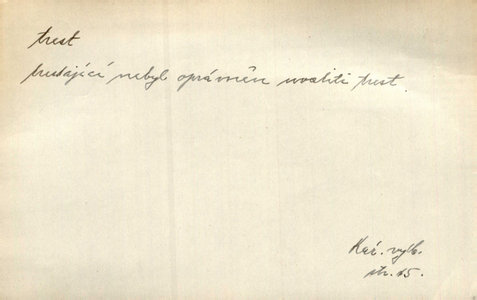 trest
trestající nebyl oprávněn uvaliti trest.
Kaž. výb.
str. 15.